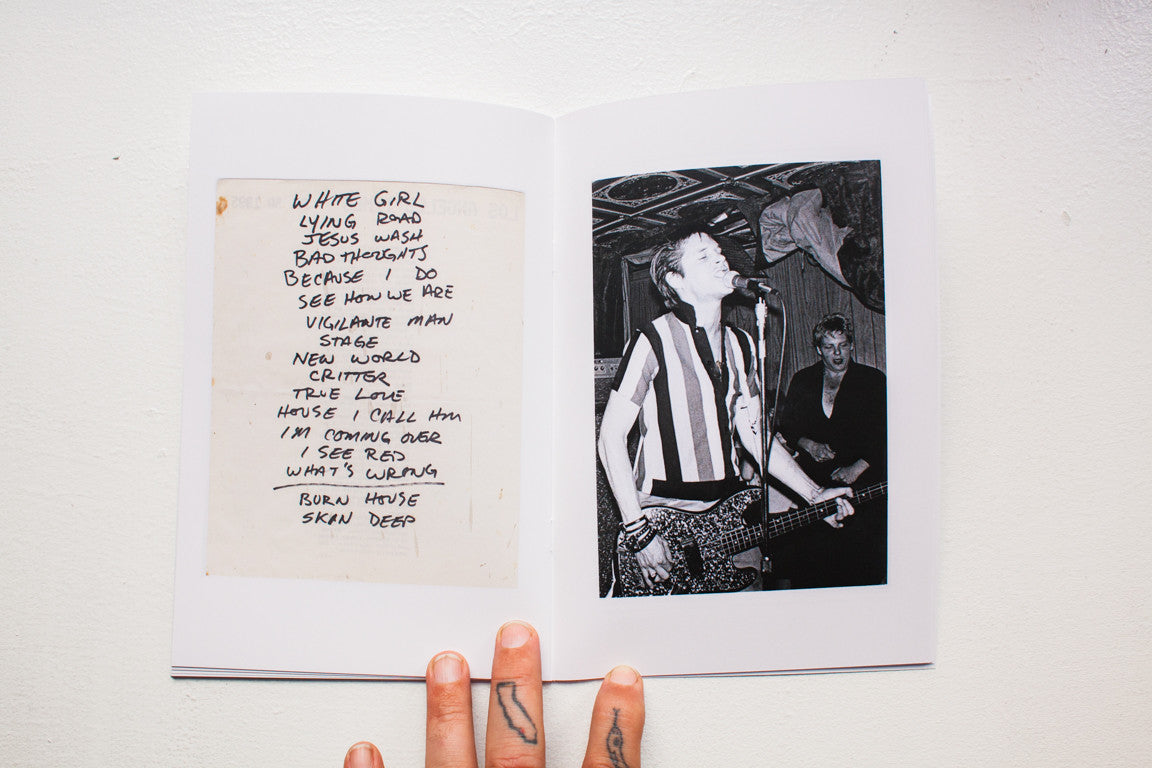 WHITE GIRL
LYING ROAD
JESUS WASH
BAD THOUGHTS
BECAUSE I DO
SEE HOW WE ARE
VIGILANTE MAN
STAGE
NEW WORLD
CRITTER
TRUE LOVE
HOUSE I CALL HM
I'M COMING OVER
I SEE RED
WHAT'S WRONG
BURN HOUSE
SKIN DEEP